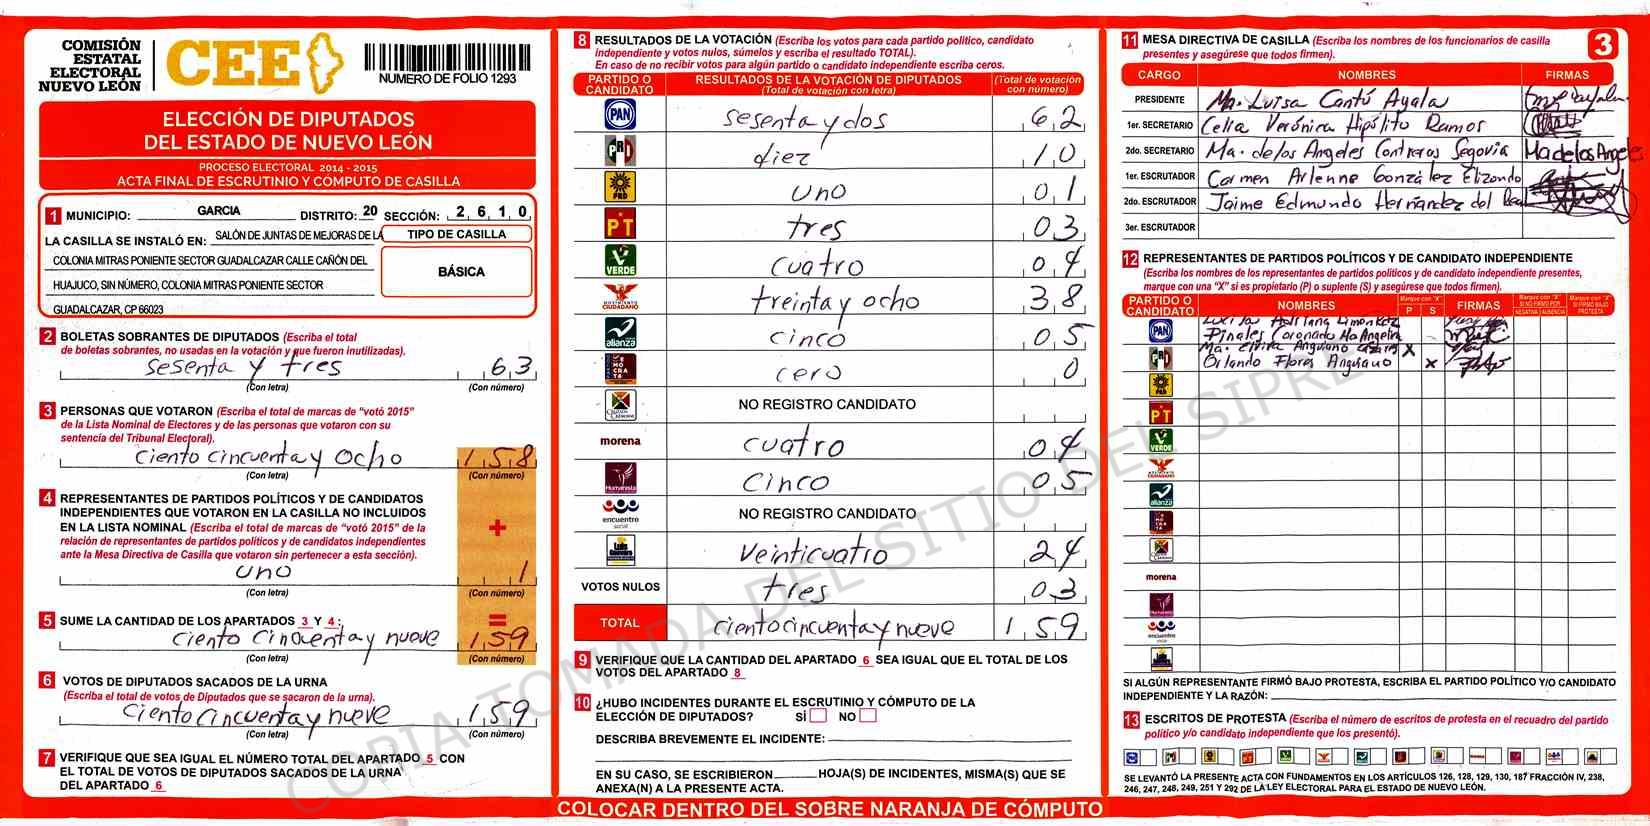 COMISIÓN
ESTATAL
ELECTORAL
NUEVO LEÓN
CEE
NUMERO DE FOLIO 1293
ELECCIÓN DE DIPUTADOS
DEL ESTADO DE NUEVO LEÓN
PROCESO ELECTORAL 2014 - 2015
ACTA FINAL DE ESCRUTINIO Y CÓMPUTO DE CASILLA
1 MUNICIPIO: GARCIA DISTRITO: 20 SECCIÓN: 2 6 1 0
LA CASILLA SE INSTALÓ EN: SALÓN DE JUNTAS DE MEJORAS DE LA
COLONIA MITRAS PONIENTE SECTOR GUADALCAZAR CALLE CAÑÓN DEL
HUAJUCO, SIN NÚMERO, COLONIA MITRAS PONIENTE SECTOR
GUADALCAZAR, CP 66023
TIPO DE CASILLA
BÁSICA
2 BOLETAS SOBRANTES DE DIPUTADOS (Escriba el total
de boletas sobrantes, no usadas en la votación y que fueron inutilizadas).
sesenta y tres 63
(Con letra) (Con número)
3 PERSONAS QUE VOTARON (Escriba el total de marcas de "votó 2015"
de la Lista Nominal de Electores y de las personas que votaron con su
sentencia del Tribunal Electoral).
ciento cincuenta y ocho 158
(Con letra) (Con número)
4 REPRESENTANTES DE PARTIDOS POLÍTICOS Y DE CANDIDATOS
INDEPENDIENTES QUE VOTARON EN LA CASILLA NO INCLUIDOS
EN LA LISTA NOMINAL (Escriba el total de marcas de "votó 2015" de la
relación de representantes de partidos políticos y de candidatos independientes
ante la Mesa Directiva de Casilla que votaron sin pertenecer a esta sección).
+
uno 1
(Con letra) (Con número)
5 SUME LA CANTIDAD DE LOS APARTADOS 3 Y 4:
=
ciento cincuenta y nueve 159
(Con letra) (Con número)
6 VOTOS DE DIPUTADOS SACADOS DE LA URNA
(Escriba el total de votos de Diputados que se sacaron de la urna).
ciento cincuenta y nueve 159
(Con letra) (Con número)
7 VERIFIQUE QUE SEA IGUAL EL NÚMERO TOTAL DEL APARTADO 5 CON
EL TOTAL DE VOTOS DE DIPUTADOS SACADOS DE LA URNA
DEL APARTADO 6
8 RESULTADOS DE LA VOTACIÓN (Escriba los votos para cada partido político, candidato
independiente y votos nulos, súmelos y escriba el resultado TOTAL).
En caso de no recibir votos para algún partido o candidato independiente escriba ceros.
PARTIDO O CANDIDATO RESULTADOS DE LA VOTACIÓN DE DIPUTADOS (Total de votación con letra) (Total de votación con número)
PAN sesenta y dos 62
PRD diez 10
PRD uno 01
PT tres 03
VERDE cuatro 04
MOVIMIENTO CIUDADANO treinta y ocho 38
alianza cinco 05
DEMOCRATA cero 0
CRUZADA CIUDADANA NO REGISTRO CANDIDATO
morena cuatro 04
Humanista cinco 05
encuentro social NO REGISTRO CANDIDATO
Veinticuatro 24
VOTOS NULOS tres 03
TOTAL ciento cincuenta y nueve 159
9 VERIFIQUE QUE LA CANTIDAD DEL APARTADO 6 SEA IGUAL QUE EL TOTAL DE LOS
VOTOS DEL APARTADO 8
10 ¿HUBO INCIDENTES DURANTE EL ESCRUTINIO Y CÓMPUTO DE LA
ELECCIÓN DE DIPUTADOS? SÍ NO
DESCRIBA BREVEMENTE EL INCIDENTE:
EN SU CASO, SE ESCRIBIERON HOJA(S) DE INCIDENTES, MISMA(S) QUE SE
ANEXA(N) A LA PRESENTE ACTA.
COLOCAR DENTRO DEL SOBRE NARANJA DE CÓMPUTO
11 MESA DIRECTIVA DE CASILLA (Escriba los nombres de los funcionarios de casilla
presentes y asegúrese que todos firmen).
3
CARGO NOMBRES FIRMAS
PRESIDENTE Ma. Luisa Cantú Ayala
1er. SECRETARIO Celia Verónica Hipólito Ramos
2do. SECRETARIO Ma. de los Angeles Contreras Segovia Ma de los Angeles
1er. ESCRUTADOR Carmen Arlenne González Elizondo
2do. ESCRUTADOR Jaime Edmundo Hernández del Real
3er. ESCRUTADOR
12 REPRESENTANTES DE PARTIDOS POLÍTICOS Y DE CANDIDATO INDEPENDIENTE
(Escriba los nombres de los representantes de partidos políticos y de candidato independiente presentes,
marque con una "X" si es propietario (P) o suplente (S) y asegúrese que todos firmen).
PARTIDO O CANDIDATO NOMBRES Marque con "X" P S FIRMAS Marque con "X" SI NO FIRMÓ POR NEGATIVA AUSENCIA Marque con "X" SI FIRMÓ BAJO PROTESTA
PAN
Pinales Coronado Ma Angelica
PRD Ma. Elvira Anguiano X
Orlando Flores Anguiano X
PRD
PT
VERDE
alianza
morena
encuentro
SI ALGÚN REPRESENTANTE FIRMÓ BAJO PROTESTA, ESCRIBA EL PARTIDO POLÍTICO Y/O CANDIDATO
INDEPENDIENTE Y LA RAZÓN:
13 ESCRITOS DE PROTESTA (Escriba el número de escritos de protesta en el recuadro del partido
político y/o candidato independiente que los presentó).
SE LEVANTÓ LA PRESENTE ACTA CON FUNDAMENTOS EN LOS ARTÍCULOS 126, 128, 129, 130, 187 FRACCIÓN IV, 238,
246, 247, 248, 249, 251 Y 292 DE LA LEY ELECTORAL PARA EL ESTADO DE NUEVO LEÓN.
COPIA TOMADA DEL SITIO DEL SIPRE